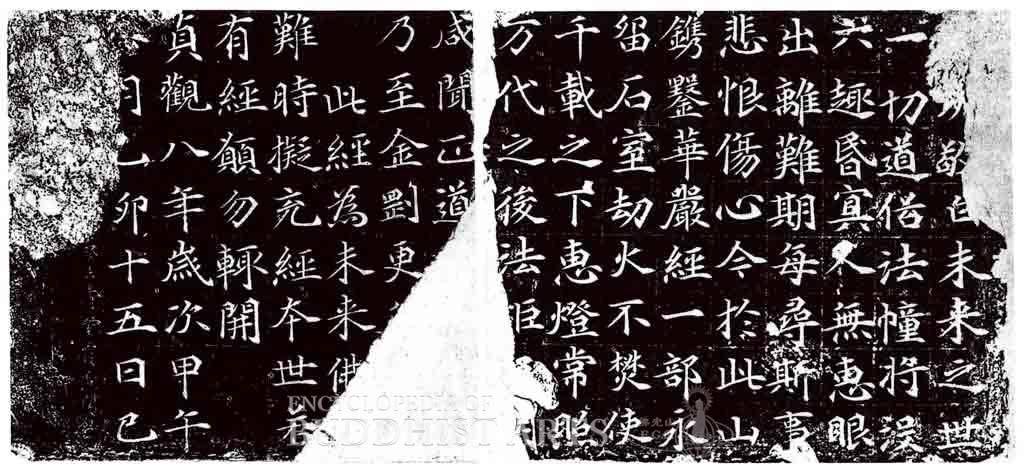 敬白未来之世
一切道俗法幢将没
六趣昏冥人無惠眼
出離難期每尋斯事
悲恨傷心今於此山
鐫鑿華嚴經一部永
留石室劫火不焚使
千載之下惠燈常照
万代之後法炬
咸聞正道
乃至金剛更
此經為未来佛
難時擬充經本世若
有經願勿輒開
貞觀八年歲次甲午
月乙卯十五日己
ENCYCLOPEDIA OF
BUDDHIST ARTS